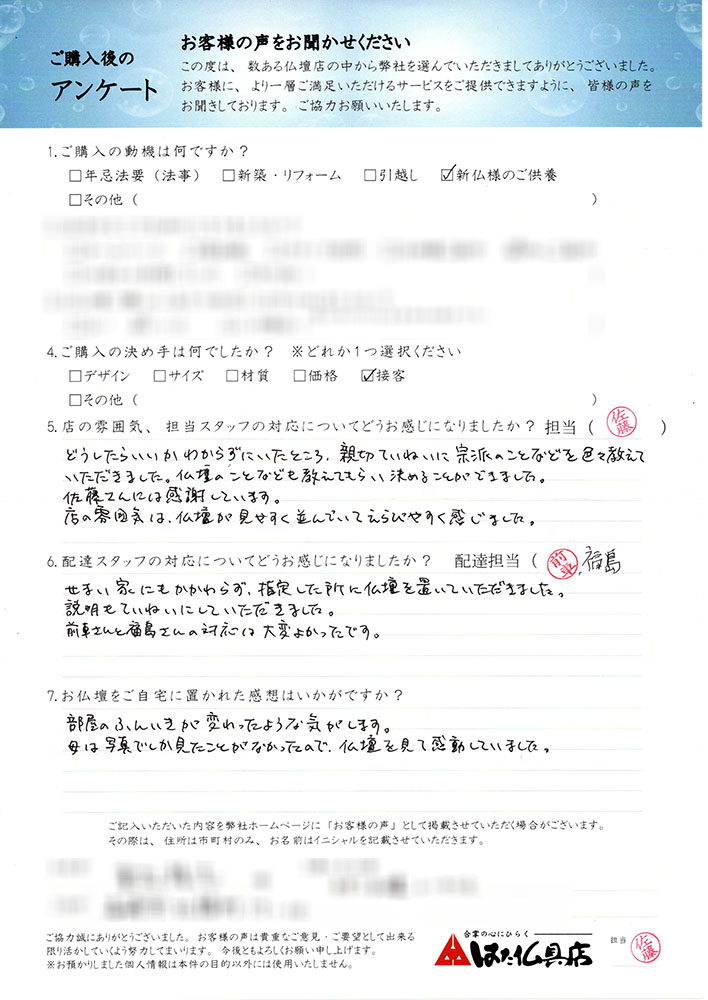 ご購入後の
アンケート
お客様の声をお聞かせください
この度は、数ある仏壇店の中から弊社を選んでいただきましてありがとうございました。
お客様に、より一層ご満足いただけるサービスをご提供できますように、皆様の声を
お聞きしております。ご協力お願いいたします。
1.ご購入の動機は何ですか？
□年忌法要（法事） □新築・リフォーム □引越し ☑新仏様のご供養
□その他（ ）
4.ご購入の決め手は何でしたか？ ※どれか1つ選択ください
□デザイン □サイズ □材質 □価格 ☑接客
□その他（ ）
5.店の雰囲気、担当スタッフの対応についてどうお感じになりましたか？担当（ 佐藤 ）
どうしたらいいかわからずにいたところ、親切ていねいに宗派のことなどを色々教えて
いただきました。仏壇のことなども教えてもらい決めることができました。
佐藤さんには感謝しています。
店の雰囲気は、仏壇が見やすく並んでいてえらびやすく感じました。
6.配達スタッフの対応についてどうお感じになりましたか？ 配達担当（ 前車、福島
せまい家にもかかわらず、指定した所に仏壇を置いていただきました。
説明もていねいにしていただきました。
前車さんと福島さんの対応は大変よかったです。
7.お仏壇をご自宅に置かれた感想はいかがですか？
部屋のふんいきが変わったような気がします。
母は写真でしか見たことがなかったので、仏壇を見て感動していました。
ご記入いただいた内容を弊社ホームページに「お客様の声」として掲載させていただく場合がございます。
その際は、住所は市町村のみ、お名前はイニシャルを記載させていただきます。
ご協力誠にありがとうございました。お客様の声は貴重なご意見・ご要望として出来る
限り活かしていくよう努力してまいります。今後ともよろしくお願い申し上げます。
※お預かりしました個人情報は本件の目的以外には使用いたしません。
合掌の心にひらく
はた仏具店
担当 佐藤